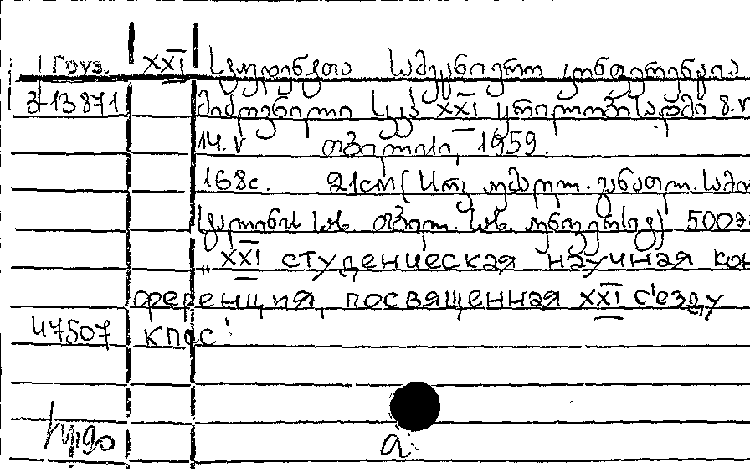 Груз. XXI სტუდენტთა სამეცნიერო კონფერენცია
313871 მიძღვნილი სკკპ XXI ყრილობისადმი 8.V
14.V თბილისი, 1959.
168с. 21см (უმაღლ. განათლ.
სტალინის სახ. თბილ. სახ. უნივერსიტ) 500
„XXI студенческая научная кон
ференция, посвященная XXI съезду
47507 КПСС.
a